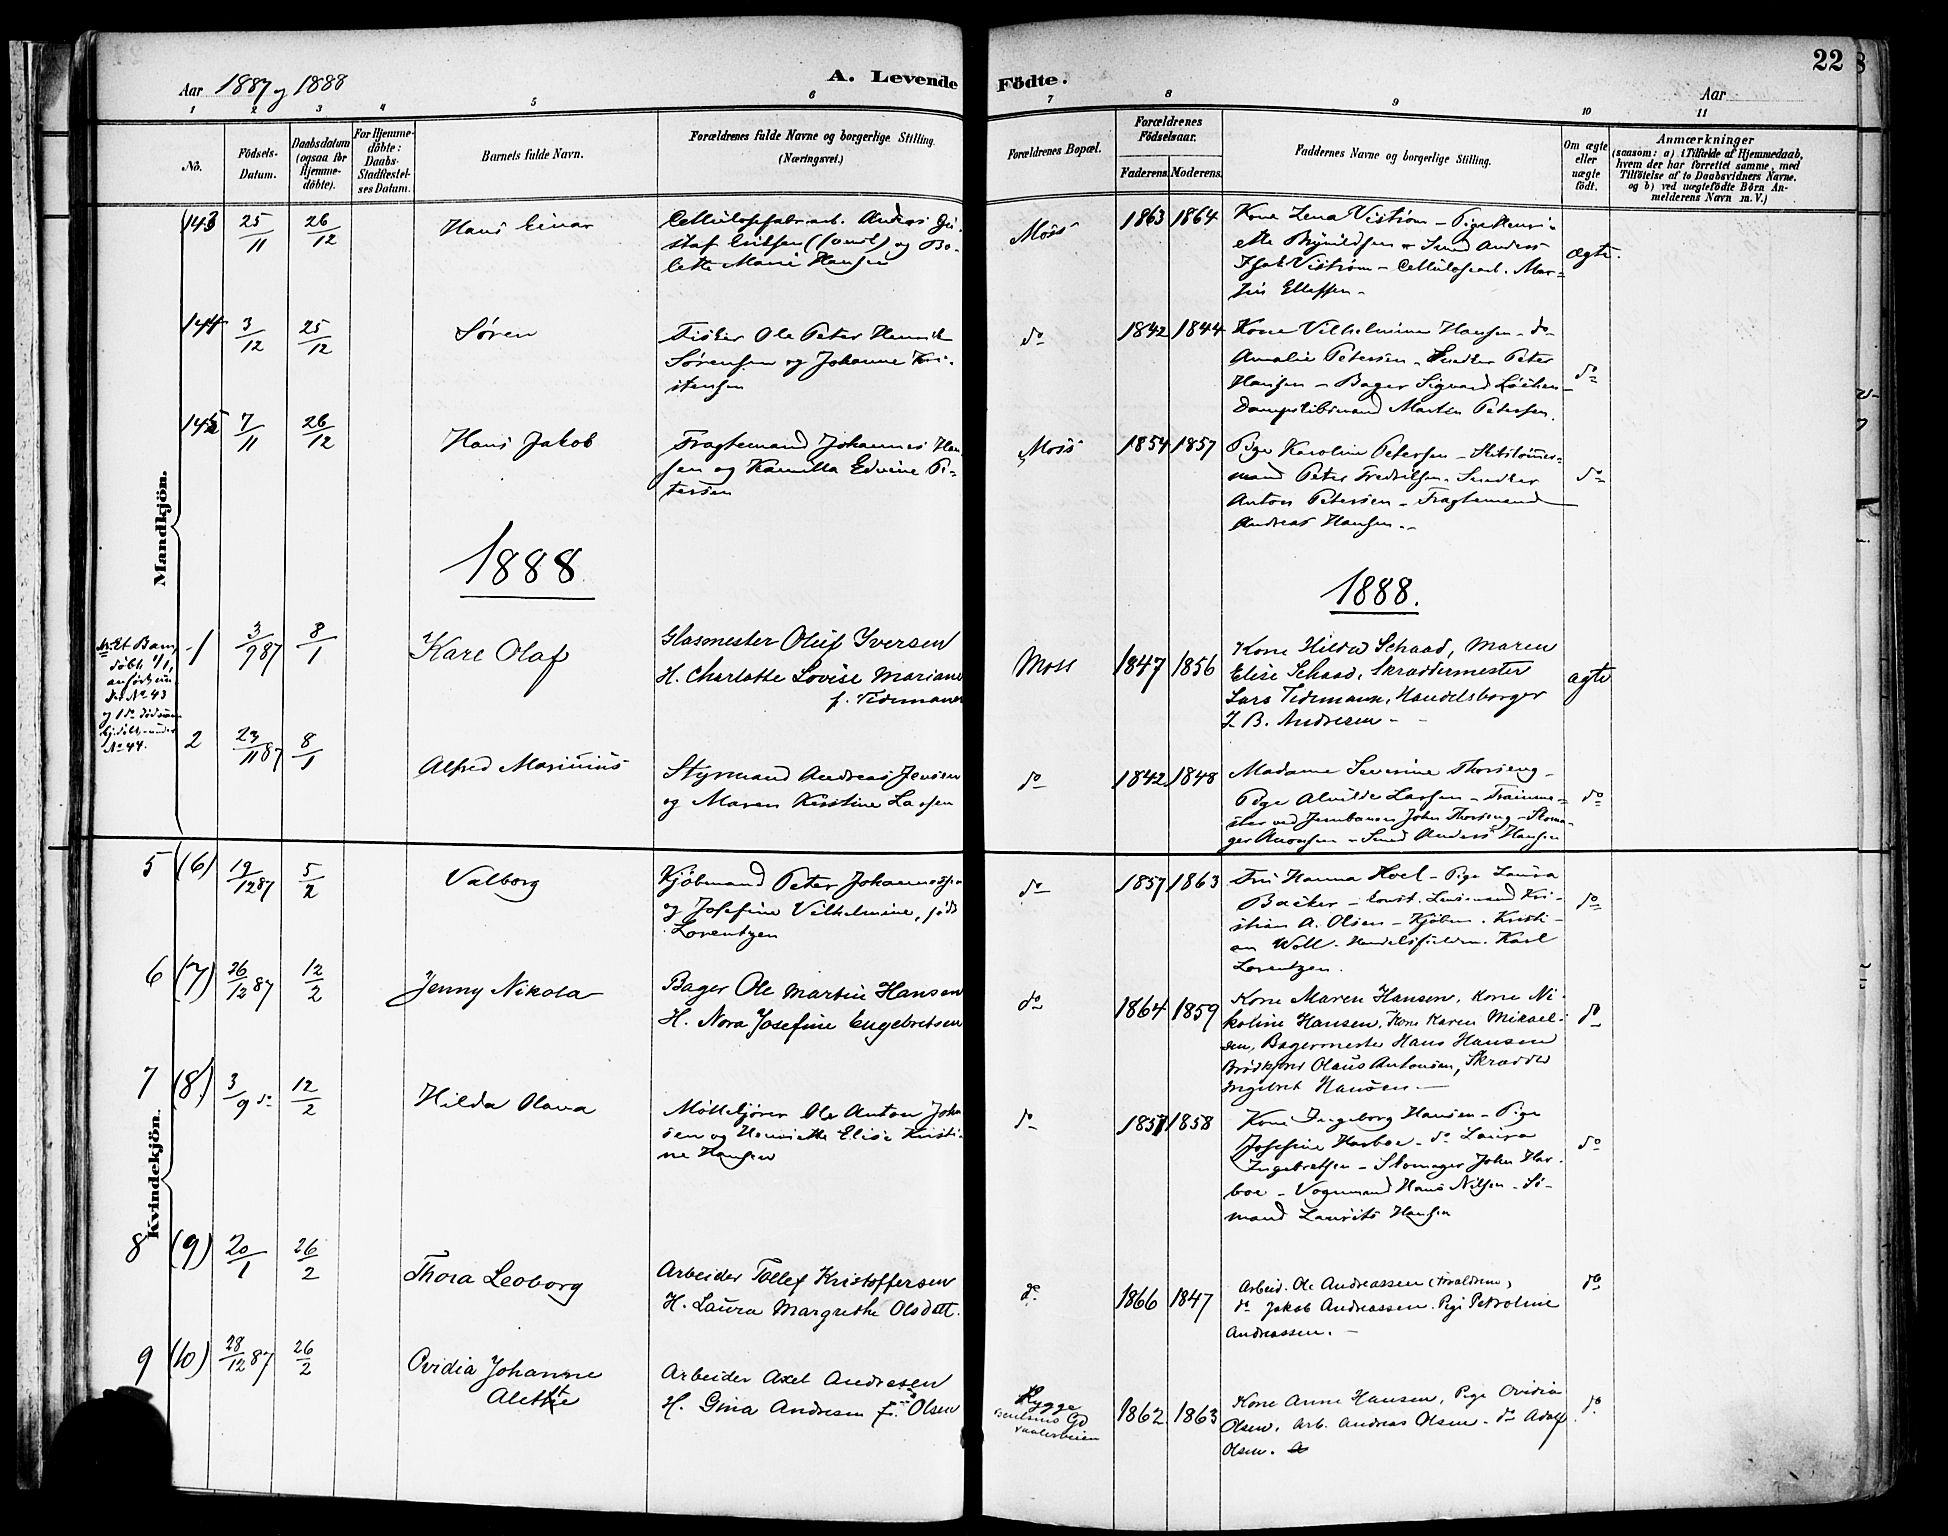 Aar 1887 og 1888
A. Levende Födte.
Aar
22
1 2 3 4 5 6 7 8 9 10 11
No.
Födsels-
Datum.
Daabsdatum
(ogsaa for
Hjemme-
döbte).
For Hjemme-
döbte:
Daabs-
Stadfæstel-
ses Datum.
Barnets fulde Navn.
Forældrenes fulde Navne og borgerlige Stilling.
(Næringsvei.)
Forældrenes Bopæl.
Forældrenes
Födselsaar.
Faderens Moderens
Faddernes Navne og borgerlige Stilling.
Om ægte
eller
uægte
födt.
Anmærkninger
(saasom: a) i Tilfælde af Hjemmedaab,
hvem der har forrettet samme, med
Tilföielse af to Daabsvidners Navne.
og b) ved uægtefödte Börn An-
melderens Navn m. V.)
Mandkjön.
143 25/11 26/12 Hans Einar
Cellulosefabr.arb. Anders Gu-
staf Eriksen (svensk) og Bo-
lette Marie Hansen
Moss 1863 1864
Kone Lena Viström – Pige Henri-
ette Brynildsen – Smed Anders
Isak Viström – Cellulosearb. Mar-
tin Ellefsen –
ægte.
144 3/12 25/12 Søren
Fisker Ole Peter Henrik
Sørensen og Johanne Kri-
stensen
do 1842 1844
Kone Vilhelmine Hansen – do
Amalie Petersen – Snedker Peter
Hansen – Bager Sigvard Löchen –
Dampskibsmand Martin Petersen.
do
145 7/11 26/12 Hans Jakob
Fragtemand Johannes Han-
sen og Kamilla Edvine Pe-
tersen
Moss 1854 1857
Pige Karoline Petersen – Skibstömmer-
mand Peter Fredriksen – Snedker
Anton Petersen – Fragtemand
Andreas Hansen. –
do
1888
1888.
Et Barn
döbt 1/1,
anfört un-
der No 43
No 44.
1 3/9 87 8/1 Kare Olaf
Glasmester Oluf Iversen
H. Charlotte Lovise Mariane
f. Tidemann
Moss 1847 1856
Kone Hilda Schaad, Maren
Elise Schaad, Skræddermester
Lars Tidemann, Handelsborger
J. B. Andresen –
ægte
2 23/11 87 8/1 Alfred Marinius
Styrmand Andreas Jensen
og Maren Kirstine Larsen
do 1842 1848
Madame Severine Thorseng –
Pige Alvilde Larsen – Trainme-
ster ved Jernbanen John Thorseng – Skoma-
ger Aronsen – Smed Anders Hansen
do
Kvindekjön.
5 (6) 19/12 87 5/2 Valborg
Kjöbmand Peter Johannessen
og Josefine Vilhelmine, födt
Lorentzen
do 1857 1863
Fru Hanna Hoel – Pige Laura
Backer – const. Lensmand Kri-
stian A. Olsen – Kjöbm. Kristi-
an Woll – Handelsfuldm. Karl
Lorentzen.
do
6 (7) 26/12 87 12/2 Jenny Nikola
Bager Ole Martin Hansen
H. Nora Josefine Engebretsen
do 1864 1859
Kone Maren Hansen, Kone Ni-
koline Hansen, Kone Karen Mikael-
sen, Bagermester Hans Hansen
Brödkjörer Olaus Antonsen, Skrædder
Ingebret Hansen. –
do
7 (8) 3/9 do 12/2 Hilda Olava
Möllekjörer Ole Anton Johan-
sen og Henriette Elise Kristi-
ne Hansen
do 1857 1858
Kone Ingeborg Hansen – Pige
Josefine Harboe – do Laura
Ingebretsen – Skomager John Har-
boe – Vognmand Hans Nilsen – Sö-
mand Laurits Hansen
do
8 (9) 20/1 26/2 Thora Leoborg
Arbeider Tollef Kristoffersen
H. Laura Margrethe Olsdatt.
do 1866 1847
Arbeid. Ole Andreassen (Forældrene)
do Jakob Andreassen. Pige Petroline
Andreassen. –
do
9 (10) 28/12 87 26/2 Ovidia Johanne
Alette
Arbeider Axel Andresen
H. Gina Andresen f. Olsen
Rygge
1862 1863
Kone Anne Hansen, Pige Ovidia
Olsen, Arb. Andreas Olsen – do Adolf
Olsen.
do